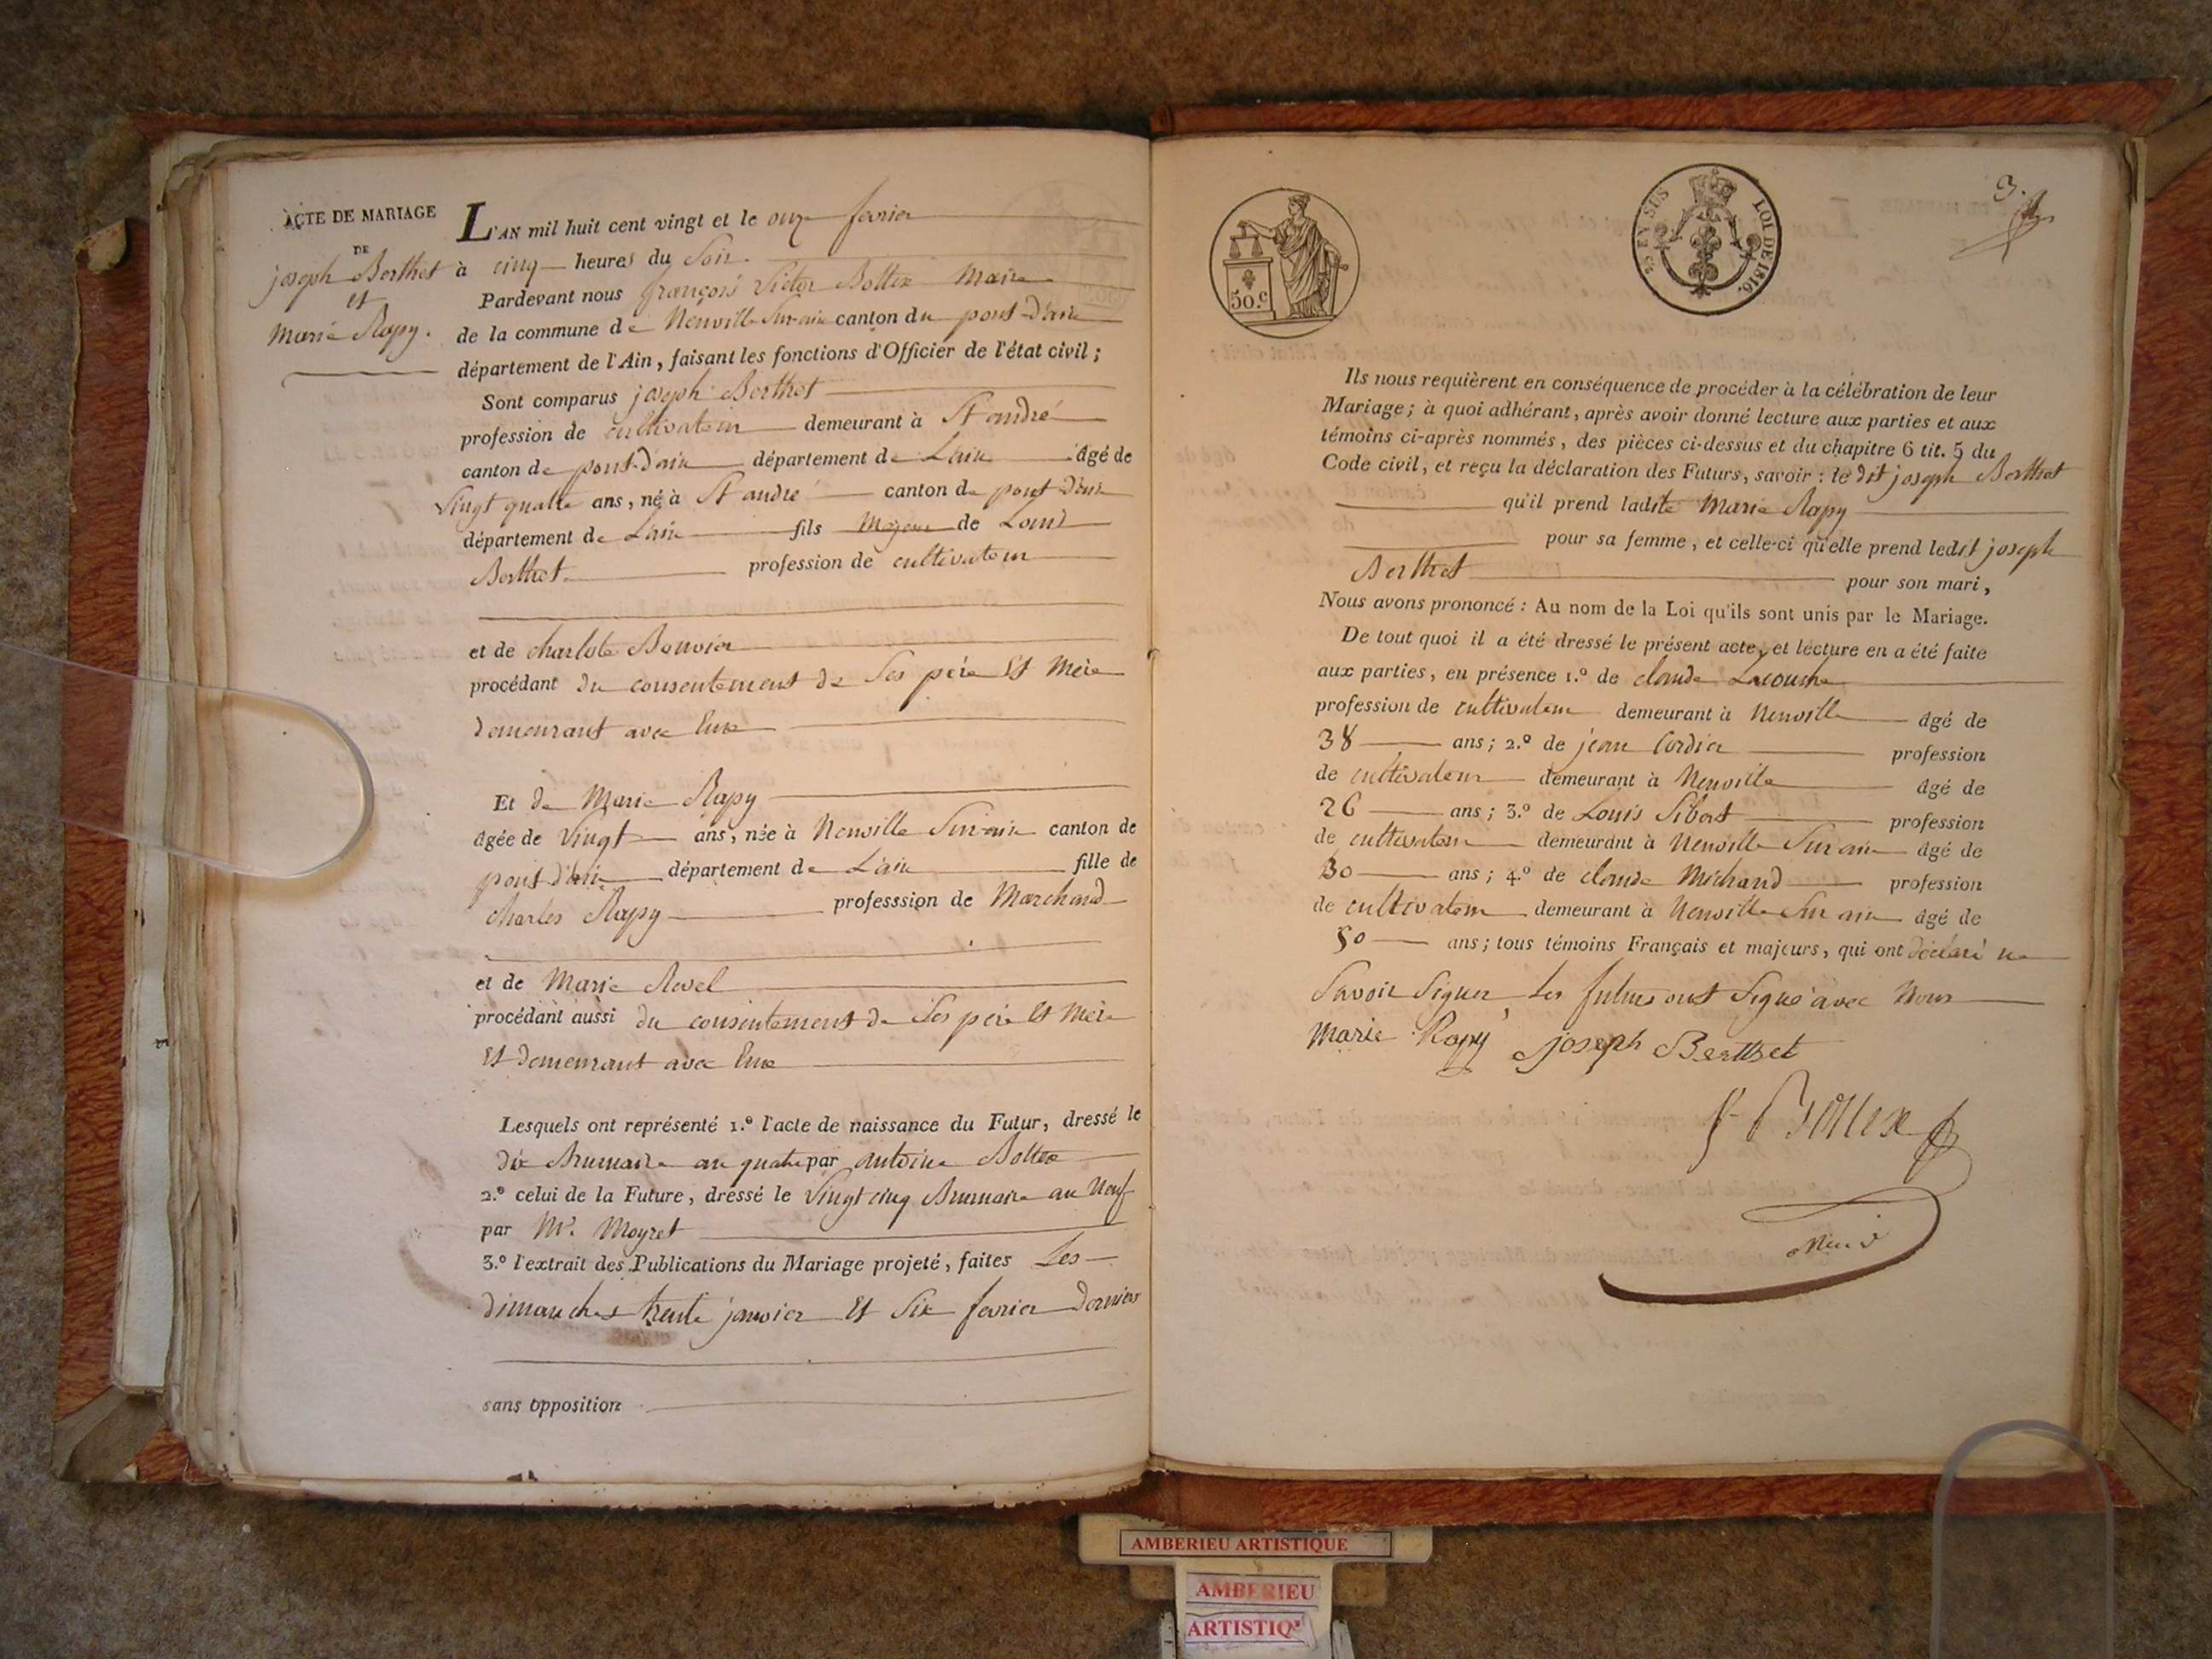 ACTE DE MARIAGE
DE
joseph Berthet
et
Marie Rapy.
L'AN mil huit cent vingt et le onze fevrier
à cinq heures du Soir.
Pardevant nous françois Victor Bottex Maire
de la commune de Neuville Sur ain canton du pont-D'ain
département de l'Ain, faisant les fonctions d'Officier de l'état civil;
Sont comparus joseph Berthet
profession de cultivateur demeurant à St andré
canton de pont-D'ain département de L'ain âgé de
Vingt quatre ans, né à St andré canton de pont D'ain
département de L'ain fils Majeur de Louis
Berthet. profession de cultivateur
et de charlote Bouvier
procédant du consentement de Ses père Et Mère
Demeurant avec Eux
Et de Marie Rapy
âgée de Vingt ans, née à Neuville Sur ain canton de
pont D'ain département de L'ain fille de
charles Rapy professsion de Marchand
et de Marie Revel
procédant aussi du consentement de Ses père Et Mère
Et Demeurant avec Eux
Lesquels ont représenté 1.º l'acte de naissance du Futur, dressé le
Dix Brumaire an quatre par antoine Bottex
2.º celui de la Future, dressé le Vingt cinq Brumaire an Neuf
par Mr. Moyret
3.º l'extrait des Publications du Mariage projeté, faites Les
Dimanches trente janvier Et Six fevrier Derniers
sans opposition
50.c
EN SUS
LOI DE 1816.
3.
Ils nous requièrent en conséquence de procéder à la célébration de leur
Mariage; à quoi adhérant, après avoir donné lecture aux parties et aux
témoins ci-après nommés, des pièces ci-dessus et du chapitre 6 tit. 5 du
Code civil, et reçu la déclaration des Futurs, savoir: le dit joseph Berthet
qu'il prend ladite Marie Rapy
pour sa femme, et celle-ci qu'elle prend ledit joseph
Berthet pour son mari,
Nous avons prononcé: Au nom de la Loi qu'ils sont unis par le Mariage.
De tout quoi il a été dressé le présent acte, et lecture en a été faite
aux parties, en présence 1.º de claude Lacouche
profession de cultivateur demeurant à Neuville âgé de
38 ans; 2.º de jean Cordier profession
de cultivateur demeurant à Neuville âgé de
26 ans; 3.º de Louis Sibert profession
de cultivateur demeurant à Neuville Sur ain âgé de
30 ans; 4.º de claude Michaud profession
de cultivateur demeurant à Neuville Sur ain âgé de
50 ans; tous témoins Français et majeurs, qui ont Déclaré ne
Savoir Signer Les futurs ont Signé avec Nous
Marie Rapy joseph Berthet
Bottex
AMBERIEU ARTISTIQUE
AMBERIEU
ARTISTIQ